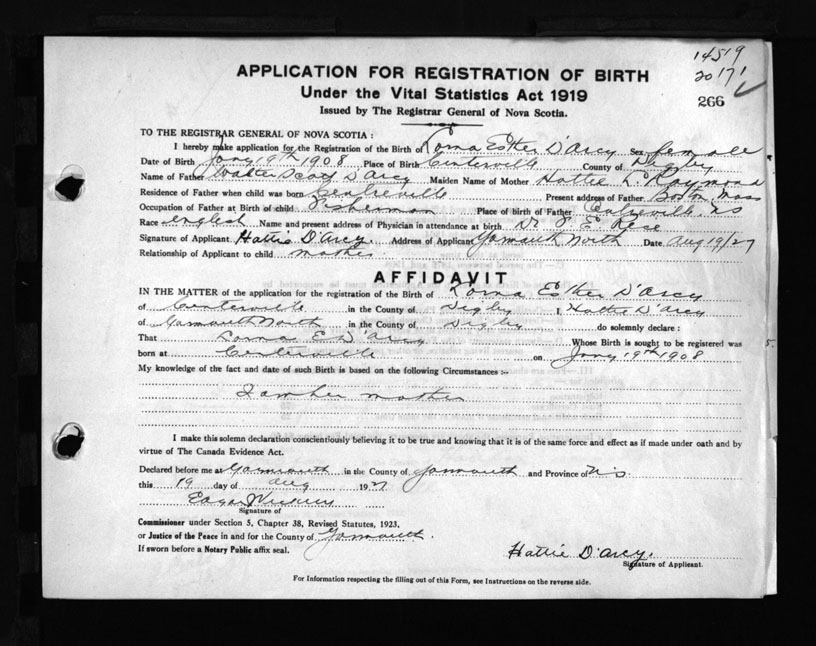 14519
20171
266
APPLICATION FOR REGISTRATION OF BIRTH
Under the Vital Statistics Act 1919
Issued by The Registrar General of Nova Scotia.
TO THE REGISTRAR GENERAL OF NOVA SCOTIA :
I hereby make application for the Registration of the Birth of Lorna Esther D'Arcy Sex female
Date of Birth Jany 19th 1908 Place of Birth Centerville County of Digby
Name of Father Walter Scott D'Arcy Maiden Name of Mother Hattie L. Raymond
Residence of Father when child was born Centreville Present address of Father Boston Mass
Occupation of Father at Birth of child Fisherman Place of birth of Father NS
Race English Name and present address of Physician in attendance at birth Dr E Rice
Signature of Applicant Hattie D'Arcy. Address of Applicant Yarmouth North Date Aug 19/27
Relationship of Applicant to child mother
AFFIDAVIT
IN THE MATTER of the application for the registration of the Birth of Lorna Esther D'Arcy
of Centerville in the County of Digby I, Hattie D'Arcy
of Yarmouth North in the County of Digby do solemnly declare :
That Lorna E D'Arcy Whose Birth is sought to be registered was
born at Centerville on Jany 19th 1908
My knowledge of the fact and date of such Birth is based on the following Circumstances :-
I am her mother
I make this solemn declaration conscientiously believing it to be true and knowing that it is of the same force and effect as if made under oath and by
virtue of The Canada Evidence Act.
Declared before me at Yarmouth in the County of Yarmouth and Province of N S
this 19 day of Aug 1927
Edgar
Signature of
Commissioner under Section 5, Chapter 38, Revised Statutes, 1923.
or Justice of the Peace in and for the County of Yarmouth.
If sworn before a Notary Public affix seal.
Hattie D'Arcy.
Signature of Applicant.
For Information respecting the filling out of this Form, see Instructions on the reverse side.